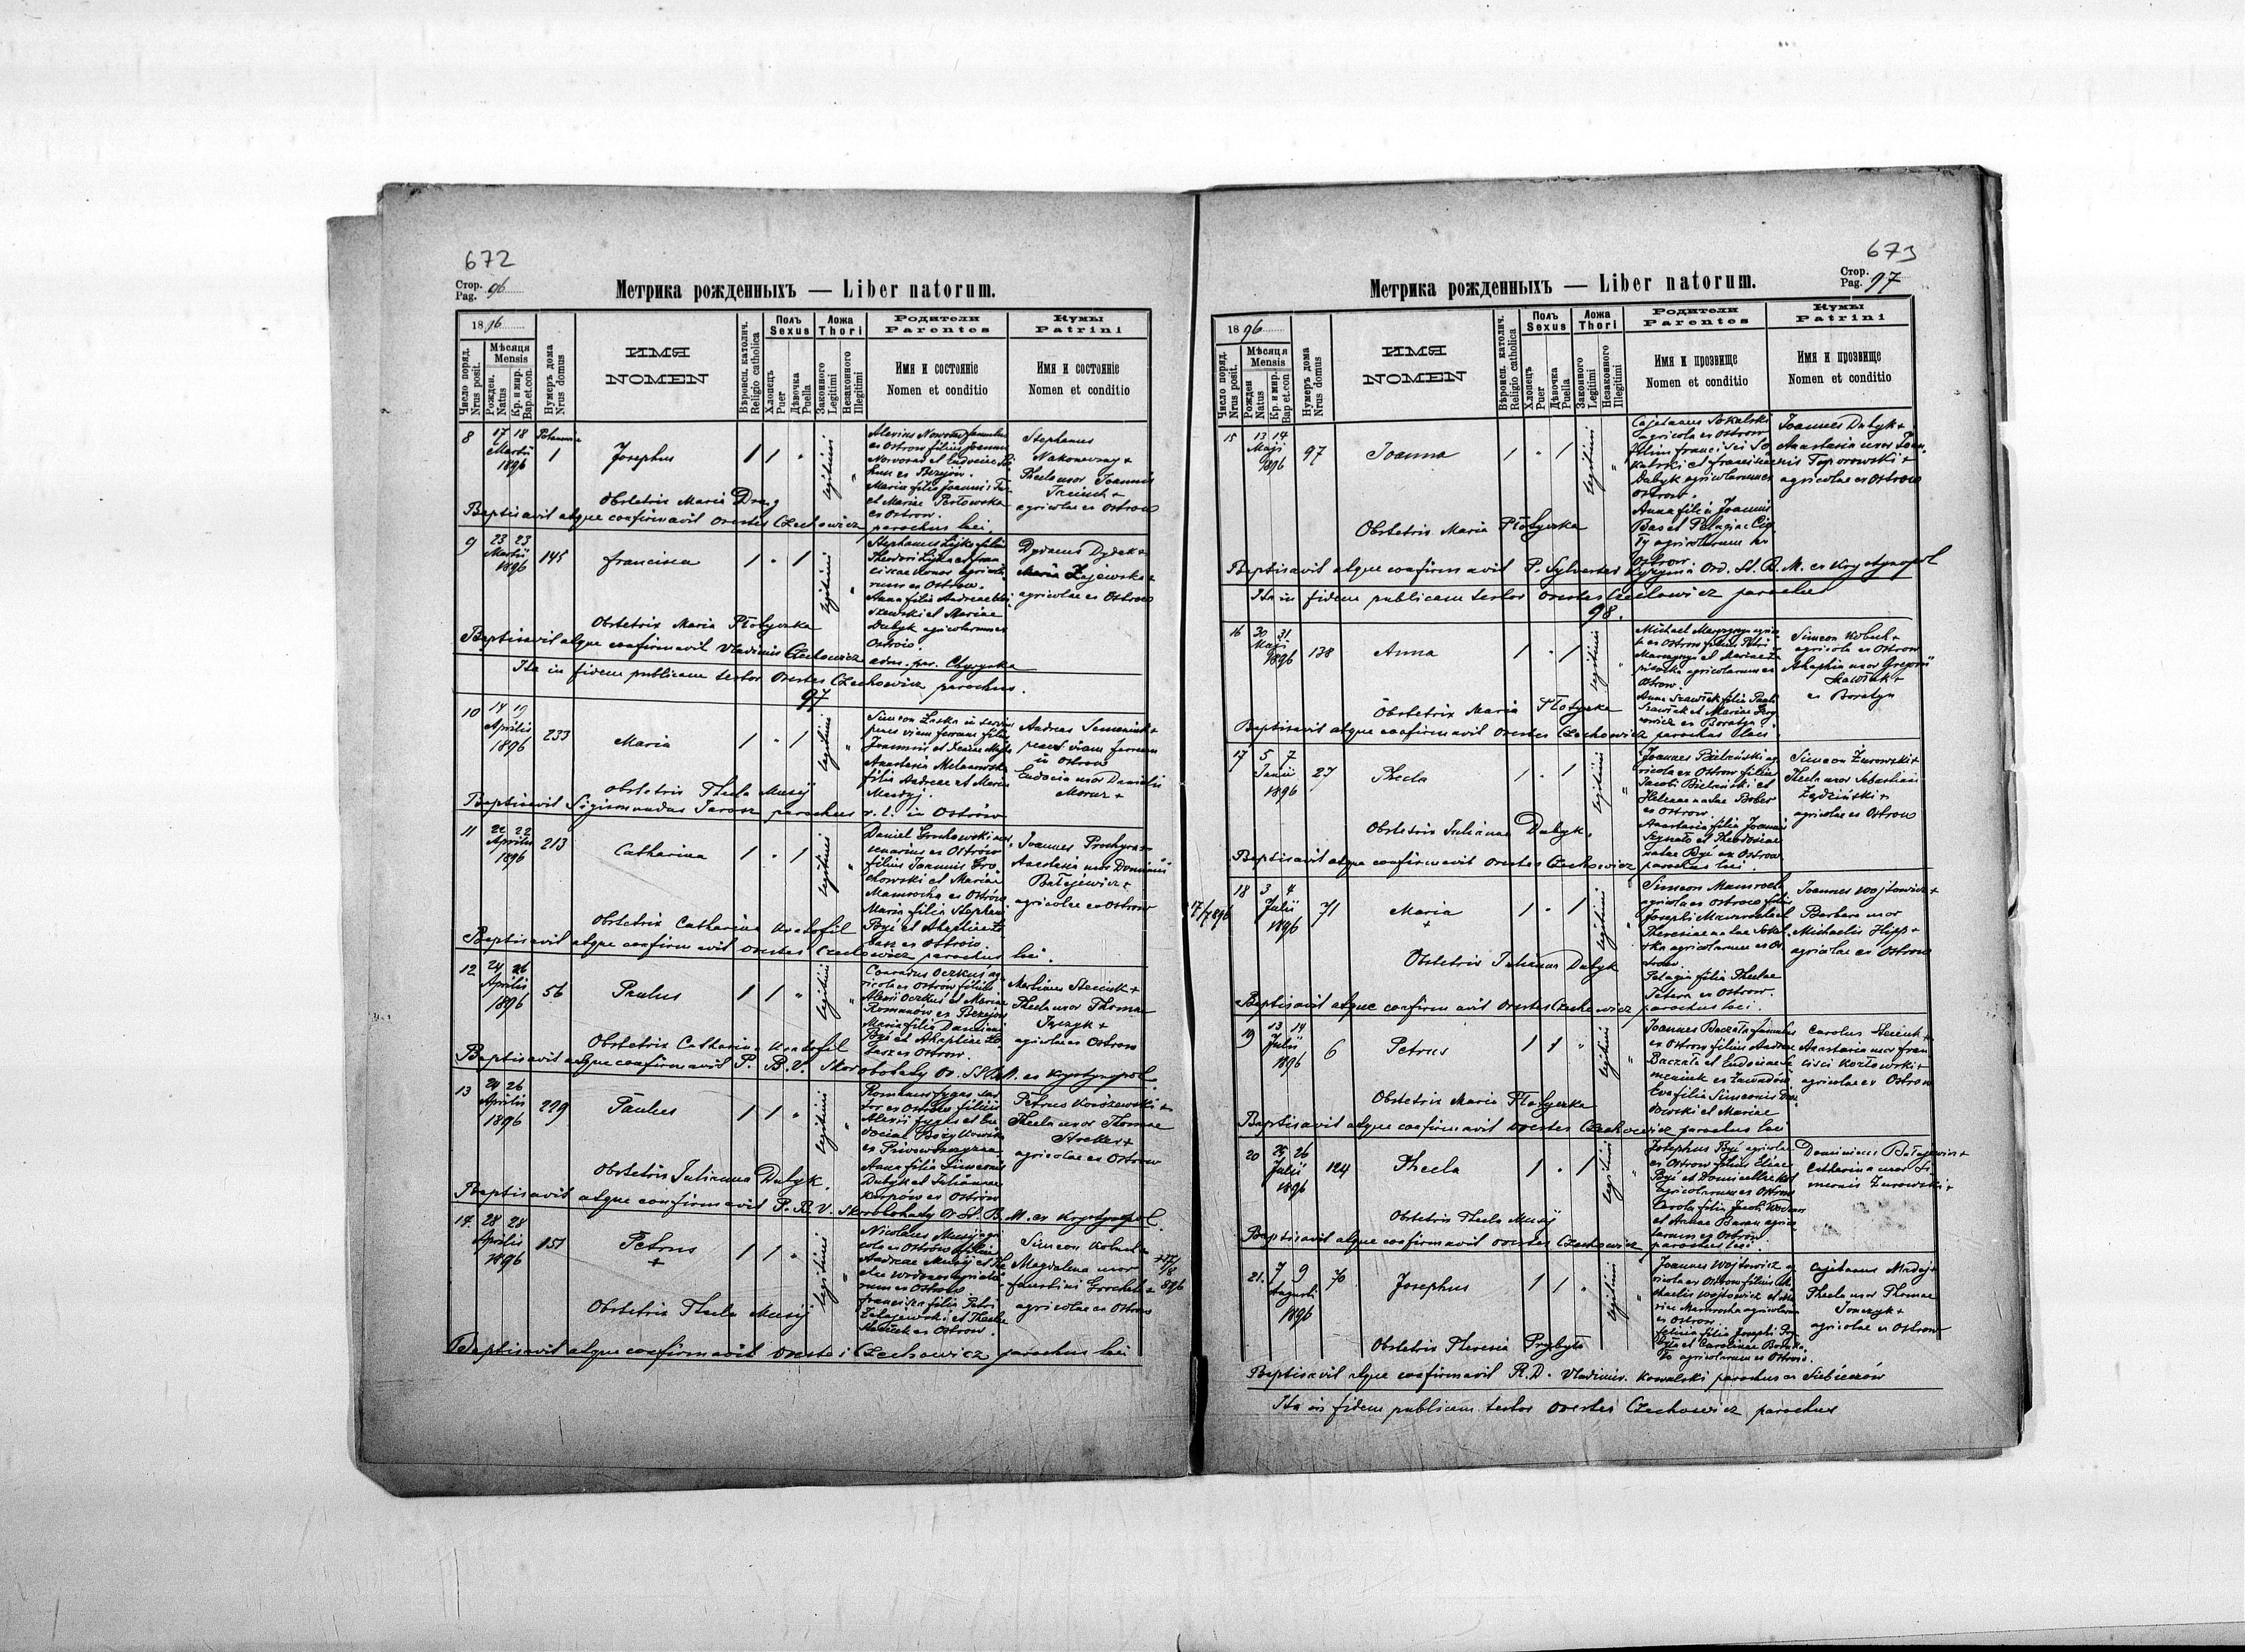 672
Стор.
Pag. 96
Метрика рожденныхъ — Liber natorum.
1896
Число поряд.
Nrus posit.
Мѣсяця
Mensis
Рожден.
Natus
Кр. и мир.
Bap. et con.
Нумеръ дома
Nrus domus
ИМЯ
NOMEN
Вѣроисп. католич.
Religio catholica
Полъ
Sexus
Хлопецъ
Puer
Дѣвочка
Puella
Ложа
Thori
Законного
Legitimi
Незаконного
Illegitimi
Родители
Parentes
Имя и состояніе
Nomen et conditio
Кумы
Patrini
Имя и состояніе
Nomen et conditio
8
17 18
Martii
1896
1
Josephus
1 1 "
legitimi
ex Ostrow filius Joannis
Maria filia Joannis
et Mariae
ex Ostrow.
Stephanus
Nakoneczny +
Thecla uxor Joannis
agricolae ex Ostrow
Obstetrix Maria Drag
Baptisavit atque confirmavit Orestes Czechowicz parochus loci.
9
23 23
Martii
1896
145
Francisca
1 " 1
legitimi
Stephanus Lyko filius
Theodori Lyko et Fran
ciscae
rum ex Ostrow.
Anna filia Andreae
szewski et Mariae
Dubyk agricolarum ex
Ostrow.
Maria
agricolae ex Ostrow
Obstetrix Maria Płotyczka
Baptisavit atque confirmavit Vladimir Czechowicz adm. par.
Ita in fidem publicam testor Orestes Czechowicz parochus.
97
10
14 19
Aprilis
1896
233
Maria
1 " 1
legitimi
Simeon
penes viam ferream filius
Joannis et
Anastasia
filia Andreae et Maria
Andreas Semeniuk +
penes viam ferream
in Ostrow
Eudocia uxor Danielis
Moroz +
Obstetrix Thecla Musij
Baptisavit Sigismundus Jarosz parochus r. l. in Ostrów
11
22 22
Aprilis
1896
213
Catharina
1 " 1
legitimi
Daniel Grochowski
ex Ostrów
filius Joannis Gro
chowski et Mariae
Mamrocha ex Ostrów
Maria filia Stephani
Byé et Ahaphiae
basz ex Ostrow.
Joannes
Anastasia uxor Dominici
Bałajewicz +
agricolae ex Ostrow
Obstetrix Catharina
Baptisavit atque confirmavit Orestes Czechowicz parochus loci.
12
24 26
Aprilis
1896
56
Paulus
1 1 "
legitimi
Conradus Oczkuś ag
ricola ex Ostrow filius
Alexii Oczkuś et Mariae
Romanow ex
Maria filia Damiani
Byé et Ahaphiae Lo
basz ex Ostrow.
Thecla uxor Thomae
agricolae ex Ostrow
Obstetrix Catharina
Baptisavit atque confirmavit P. B. V. Skorobohaty ex Krystynopol.
13
24 26
Aprilis
1896
229
Paulus
1 1 "
legitimi
Romanus
tor ex Ostrow filius
Alexii et Eu
dociae
Anna filia Simeonis
Dubyk et Julianae
Karpów ex Ostrów
Petrus
Thecla uxor Thomae
agricolae ex Ostrow
Obstetrix Julianna Dubyk.
Baptisavit atque confirmavit P. B. V. Skorobohaty O. St. B. M. ex Krystynopol.
14.
28 28
Aprilis
1896
151
Petrus
+
1 1 "
legitimi
Nicolaus Musij agri
cola ex Ostrów filius
Andreae Musij et The
clae
rum ex Ostrow
Francisca filia Petri
Zalazewski et Theclae
ex Ostrow.
Simeon Kobuch +
Magdalena uxor
Faustini
agricolae ex Ostrow
+ 17/8 896
Obstetrix Thecla Musij
Baptisavit atque confirmavit Orestes Czechowicz parochus loci
673
Стор.
Pag. 97
Метрика рожденныхъ — Liber natorum.
1896
Число поряд.
Nrus posit.
Мѣсяця
Mensis
Рожден
Natus
Кр. и мир.
Bap et con.
Нумеръ дома
Nrus domus
ИМЯ
NOMEN
Вѣроисп. католич.
Religio catholica
Полъ
Sexus
Хлопецъ
Puer
Дѣвочка
Puella
Ложа
Thori
Законного
Legitimi
Незаконного
Illegitimi
Родители
Parentes
Имя и прозвище
Nomen et conditio
Кумы
Patrini
Имя и прозвище
Nomen et conditio
15
13 14
Maji
1896
97
Joanna
1 " 1
legitimi
Cajetanus Sokalski
agricola ex Ostrow
filius Francisci So
kalski et Franciscae
Dubyk agricolarum ex
Ostrow.
Anna filia Joannis
Bas et Pelagiae Cię
ły agricolarum ex
Ostrow.
Joannes Dubyk +
Anastasia uxor Joan
nis Toporowski +
agricolae ex Ostrow
Obstetrix Maria Płotyczka
Baptisavit atque confirmavit P. Sylvester Kyzyma Ord. St. B. M. ex Krystynopol
Ita in fidem publicam testor Orestes Czechowicz parochus
98.
16
30 31
Maji
1896
138
Anna
1 " 1
legitimi
Michael
ex Ostrow filius Petri
et Mariae
agricolarum ex
Ostrow.
Anna Szawlek filia Pauli
Szawlek et Mariae
ex Boratyn.
Simeon Kobuch +
agricola ex Ostrow
Ahaphia uxor Gregorii
ex Boratyn
Obstetrix Maria Płotyczka
Baptisavit atque confirmavit Orestes Czechowicz parochus loci.
17
5 7
Junii
1896
27
Thecla
1 " 1
legitimi
Joannes Bielański ag
ricola ex Ostrow filius
Jacobi Bielański et
Helenae natae Bober
ex Ostrow.
Anastasia filia Joannis
et Theodosiae
natae Byé ex Ostrow
Simeon Żurowski +
Thecla uxor Sebastiani
agricolae ex Ostrow
Obstetrix Julianna Dubyk.
Baptisavit atque confirmavit Orestes Czechowicz parochus loci.
17/7 896
18
3 4
Julii
1896
71
Maria
+
1 " 1
legitimi
Simeon Mamrocha
agricola ex Ostrow filius
Josephi Mamrocha et
Theresiae natae Sokal
ska agricolarum ex Os
trow.
Pelagia filia Theclae
ex Ostrow.
Joannes Wojtowicz +
Barbara uxor
Michaelis Hipp +
agricolae ex Ostrow
Obstetrix Julianna Dubyk
Baptisavit atque confirmavit Orestes Czechowicz parochus loci.
19
13 14
Julii
1896
6
Petrus
1 1 "
legitimi
Joannes Baczała famulus
ex Ostrow filius Andreae
Baczała et Eudociae Se
meniuk ex Zawadów
Eva filia Simeonis
et Mariae
Carolus
Anastasia uxor Fran
cisci Kozłowski +
agricolae ex Ostrow
Obstetrix Maria Płotyczka
Baptisavit atque confirmavit Orestes Czechowicz parochus loci
20
25 26
Julii
1896
124
Thecla
1 " 1
legitimi
Josephus Byé agricola
ex Ostrow filius Eliae
Byé et Domicellae
agricolarum ex Ostrow
Carola filia Jacobi
et Annae Baran agrico
larum ex Ostrów
Dominicus Bałajewicz +
Catharina uxor Si
meonis Żurowski +
Obstetrix Thecla Musij
Baptisavit atque confirmavit Orestes Czechowicz parochus loci.
21.
7 9
Augusti
1896
76
Josephus
1 1 "
legitimi
Joannes Wojtowicz ag
ricola ex Ostrow filius Mi
chaelis Wojtowicz et Ma
riae Mamrocha agricolarum
ex Ostrow.
filia Josephi Przy
była et Carolinae
agricolarum ex Ostrow.
Cajetanus Madej +
Thecla uxor Thomae
Tomczyk +
agricolae ex Ostrow
Obstetrix Theresia Przybyła
Baptisavit atque confirmavit R. D. Vladimir. Kowalski parochus ex Siebieczów
Ita in fidem publicam testor Orestes Czechowicz parochus